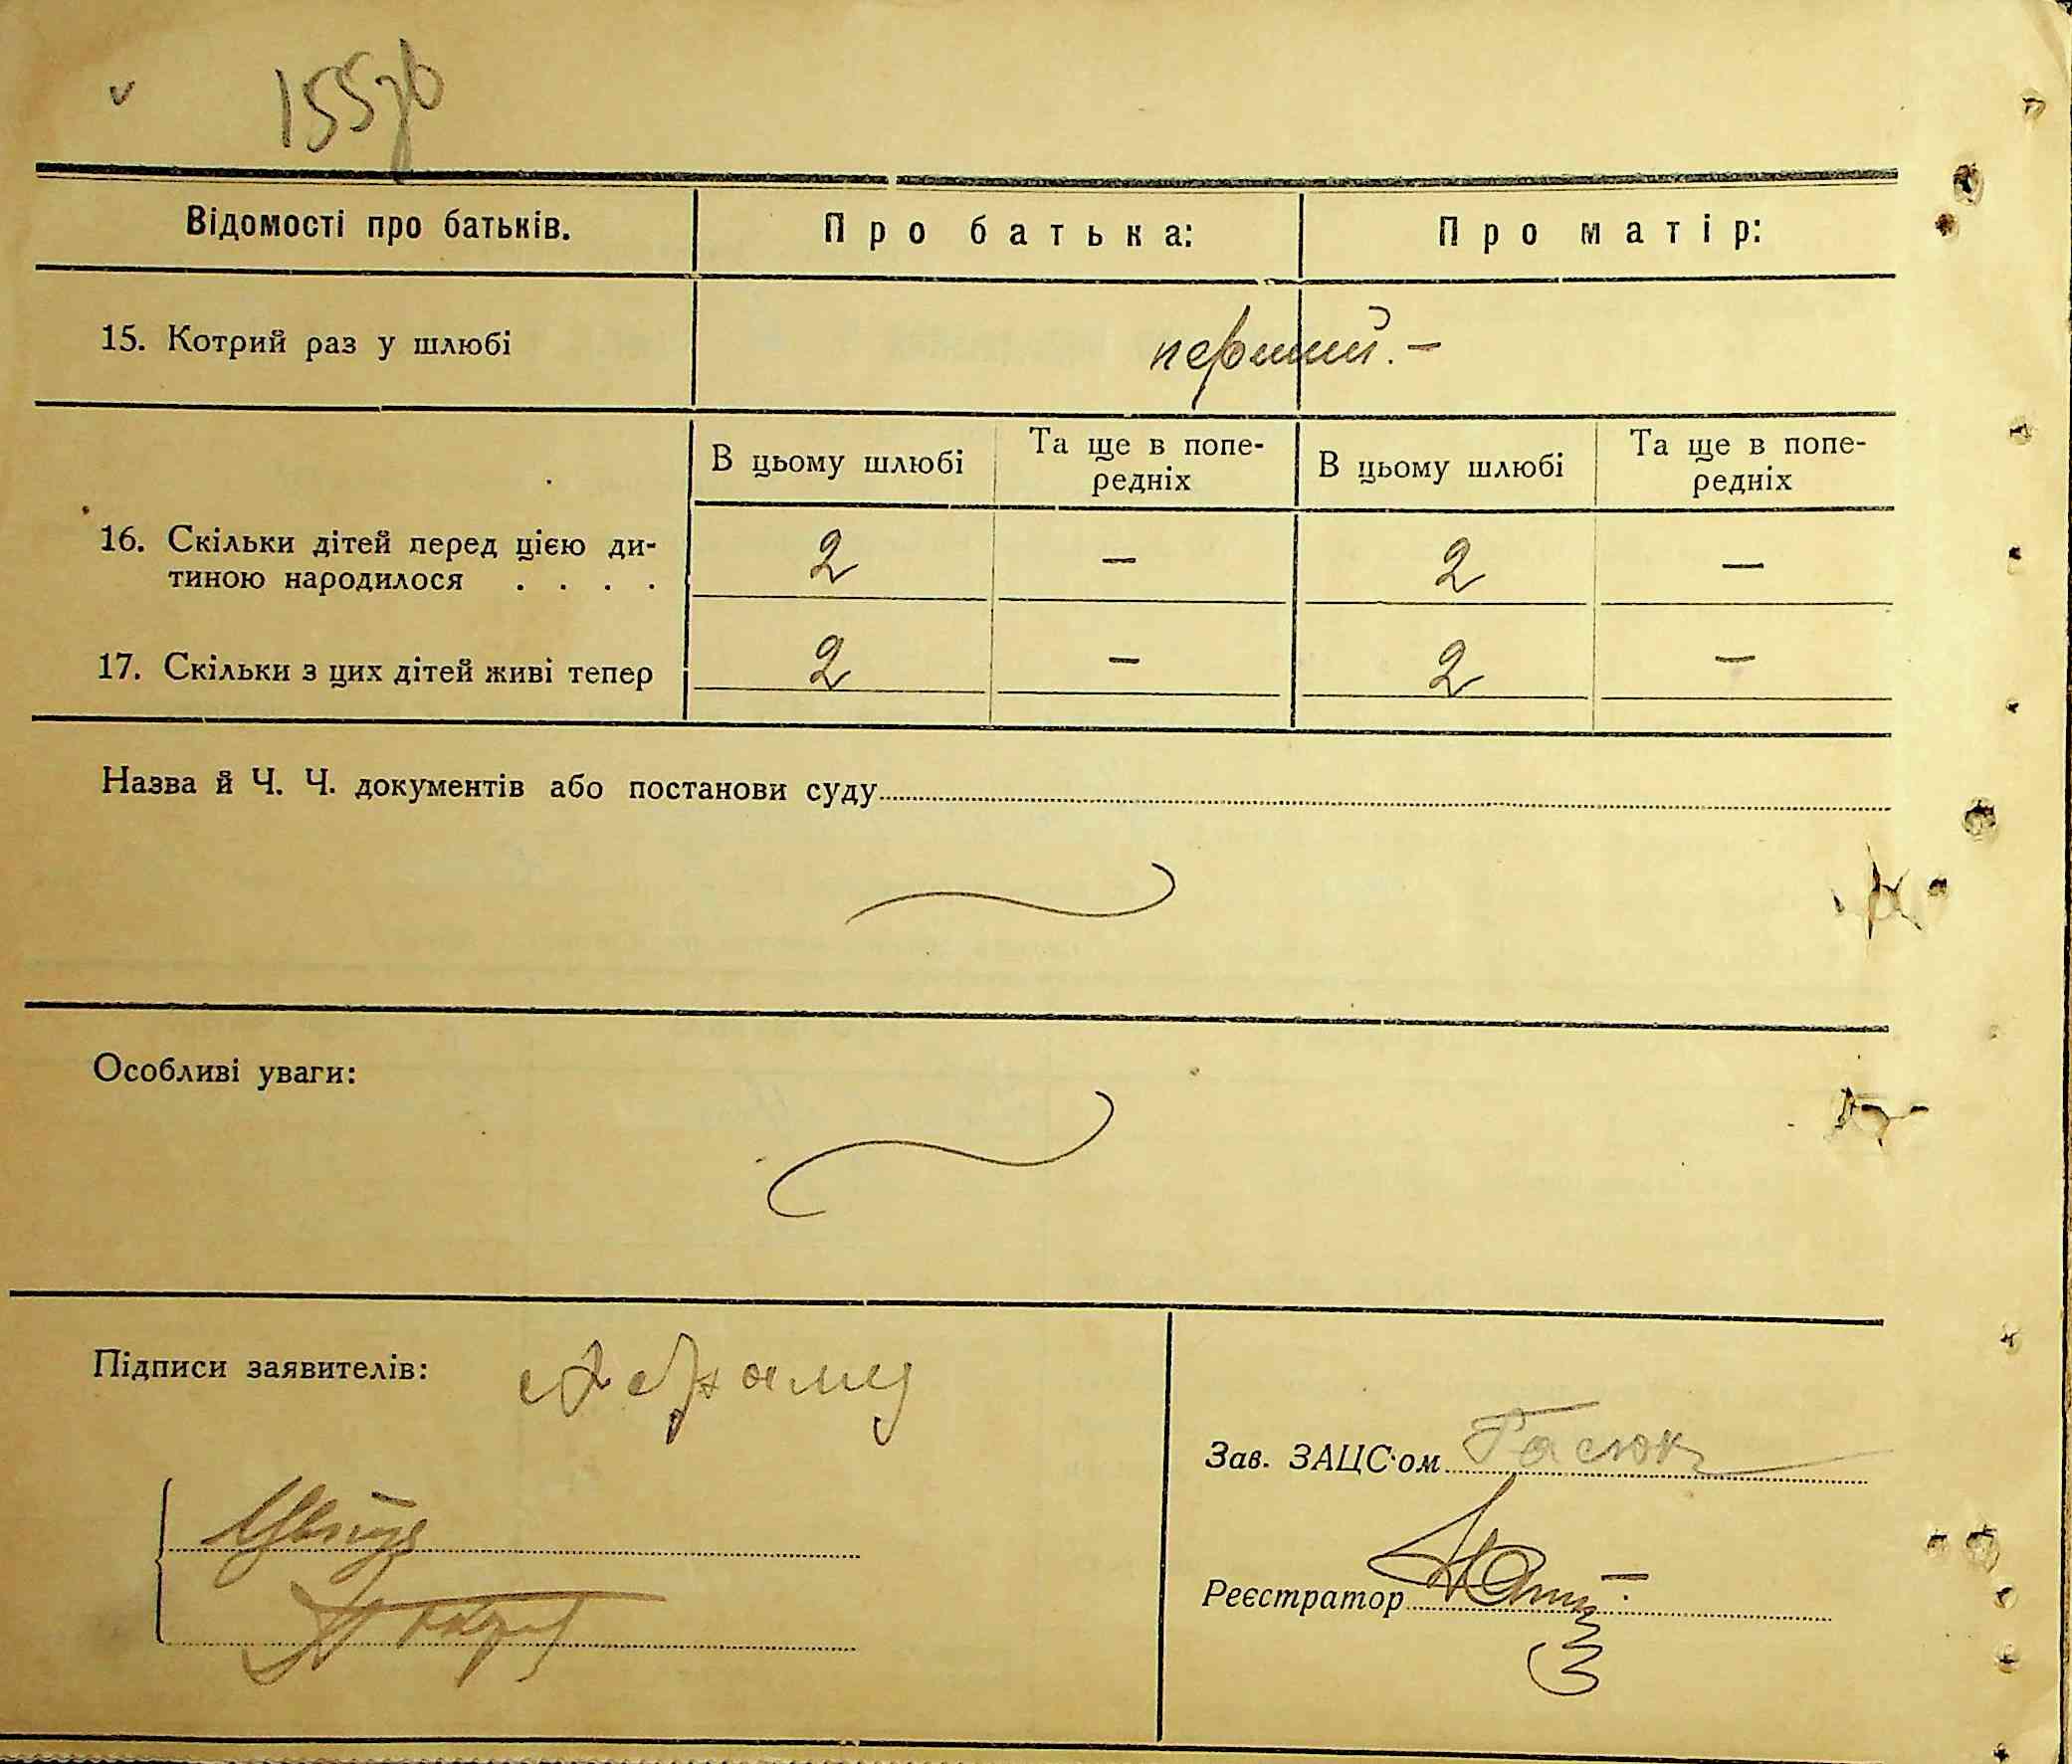 155зв
Відомості про батьків. Про батька: Про матір:
15. Котрий раз у шлюбі перший. –
В цьому шлюбі Та ще в попе-
редніх В цьому шлюбі Та ще в попе-
редніх
16. Скільки дітей перед цією ди-
тиною народилося . . . . 2 – 2 –
17. Скільки з цих дітей живі тепер 2 – 2 –
Назва й Ч. Ч. документів або постанови суду
Особливі уваги:
Підписи заявителів:
Зав. ЗАЦС·ом Гасюк
Реєстратор